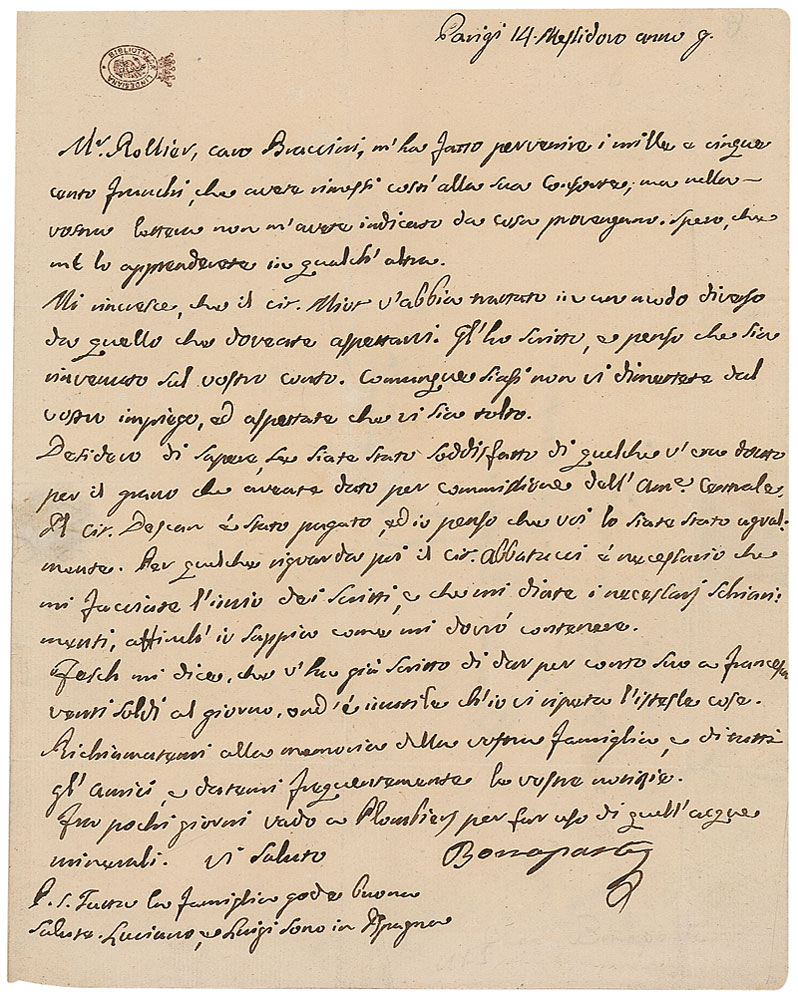 Parigi 14. Messidoro anno 9.
BIBLIOTHECA LINDESIANA
Mr. Rollier, caro Braccini, m'ha fatto pervenire i mille e cinque
cento franchi, che avete rimessi costì alla sua Consorte; ma nella
vostra lettera non m'avete indicato da cosa provengano. Spero, che
me lo apprenderete in qualch'altra.
Mi rincresce, che il cit. Miot v'abbia trattato in un modo diverso
da quello che dovevate aspettarvi. Gl'ho scritto, e penso che sia
rinvenuto sul vostro conto. Comunque siasi non vi dimettete dal
vostro impiego, ed aspettate che vi sia tolto.
Desidero di sapere, se siate stato soddisfatto di quelche v'era dovuto
per il grano che avevate dato per commissione dell'Ame. Centrale.
Il cit. Descan è stato pagato, ed io penso che voi lo siate stato ugual-
mente. Per quelche riguarda poi il cit. Abbatucci è necessario che
mi facciate l'invio dei scritti, e che mi diate i necessarj schiari-
menti, affinch'io sappia come mi dovrò contenere.
Fesch mi dice, che v'ha già scritto di dar per conto suo a Francesca
venti soldi al giorno, ond'è inutile ch'io vi ripeta l'istesse cose.
Richiamatemi alla memoria della vostra famiglia, e di tutti
gl'amici, e datemi frequentemente le vostre notizie.
Fra pochi giorni vado a Plombiers per far uso di quell'acque
minerali. Vi saluto Bonaparte
P. S. Tutta la famiglia gode buona
salute. Luciano, e Luigi sono in Ispagna